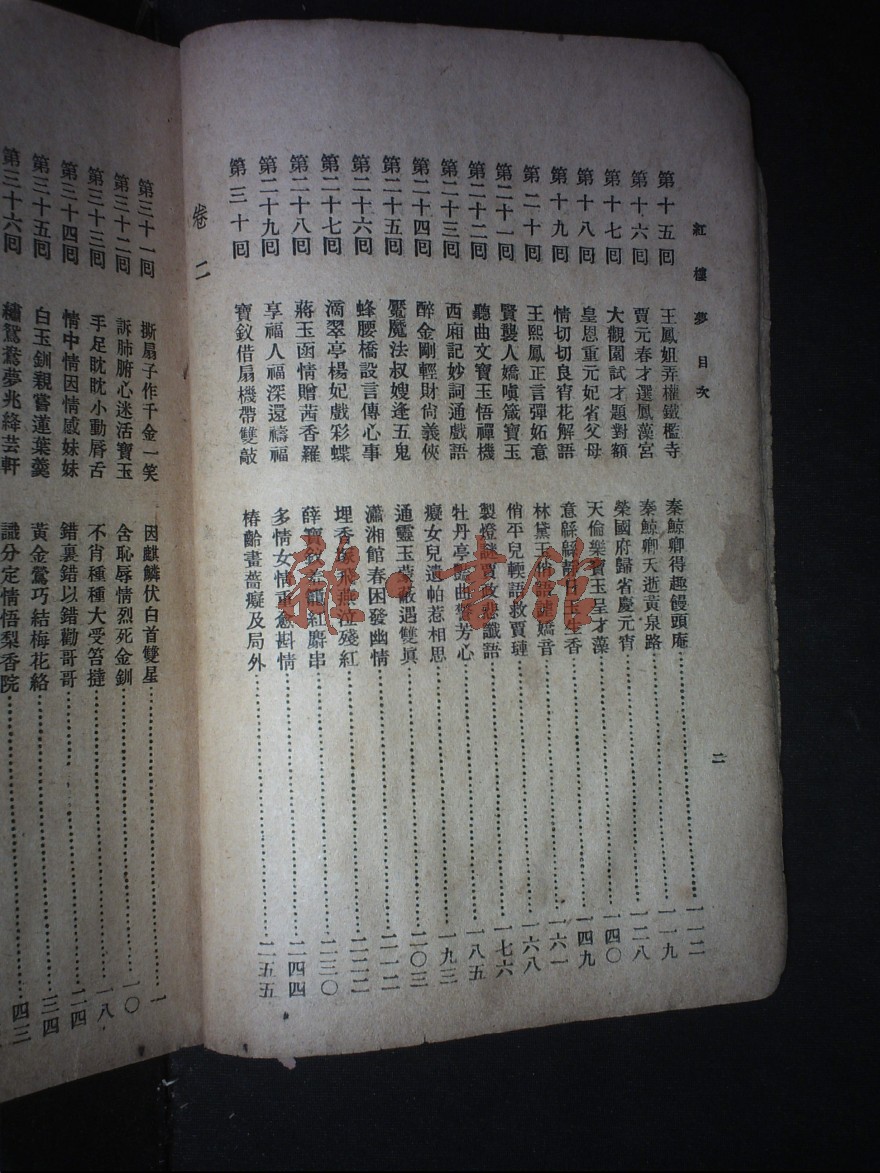 紅樓夢 目次
第十五囘 王鳳姐弄權鐵檻寺 秦鯨卿得趣饅頭庵 一一二
第十六囘 賈元春才選鳳藻宮 秦鯨卿夭逝黃泉路 一一九
第十七囘 大觀園試才題對額 榮國府歸省慶元宵 一二八
第十八囘 皇恩重元妃省父母 天倫樂寶玉呈才藻 一四〇
第十九囘 情切切良宵花解語 意緜緜靜日玉生香 一四九
第二十囘 王熙鳳正言彈妬意 林黛玉俏語謔嬌音 一六一
第二十一囘 賢襲人嬌嗔箴寶玉 俏平兒輭語救賈璉 一六八
第二十二囘 聽曲文寶玉悟禪機 製燈謎賈政悲讖語 一七六
第二十三囘 西廂記妙詞通戲語 牡丹亭豔曲警芳心 一八五
第二十四囘 醉金剛輕財尙義俠 癡女兒遺帕惹相思 一九三
第二十五囘 魘魔法叔嫂逢五鬼 通靈玉蒙蔽遇雙眞 二〇三
第二十六囘 蜂腰橋設言傳心事 瀟湘館春困發幽情 二一二
第二十七囘 滴翠亭楊妃戲彩蝶 埋香塚飛燕泣殘紅 二二二
第二十八囘 蔣玉函情贈茜香羅 薛寶釵羞籠紅麝串 二三〇
第二十九囘 享福人福深還禱福 多情女情重愈斟情 二四四
第三十囘 寶釵借扇機帶雙敲 椿齡畫薔癡及局外 二五五
二
卷二
第三十一囘 撕扇子作千金一笑 因麒麟伏白首雙星 一
第三十二囘 訴肺腑心迷活寶玉 含恥辱情烈死金釧 一〇
第三十三囘 手足眈眈小動唇舌 不肖種種大受笞撻 一八
第三十四囘 情中情因情感妹妹 錯裏錯以錯勸哥哥 二四
第三十五囘 白玉釧親嘗蓮葉羹 黃金鶯巧結梅花絡 三四
第三十六囘 繡鴛鴦夢兆絳芸軒 識分定情悟梨香院 四三
雜·書館